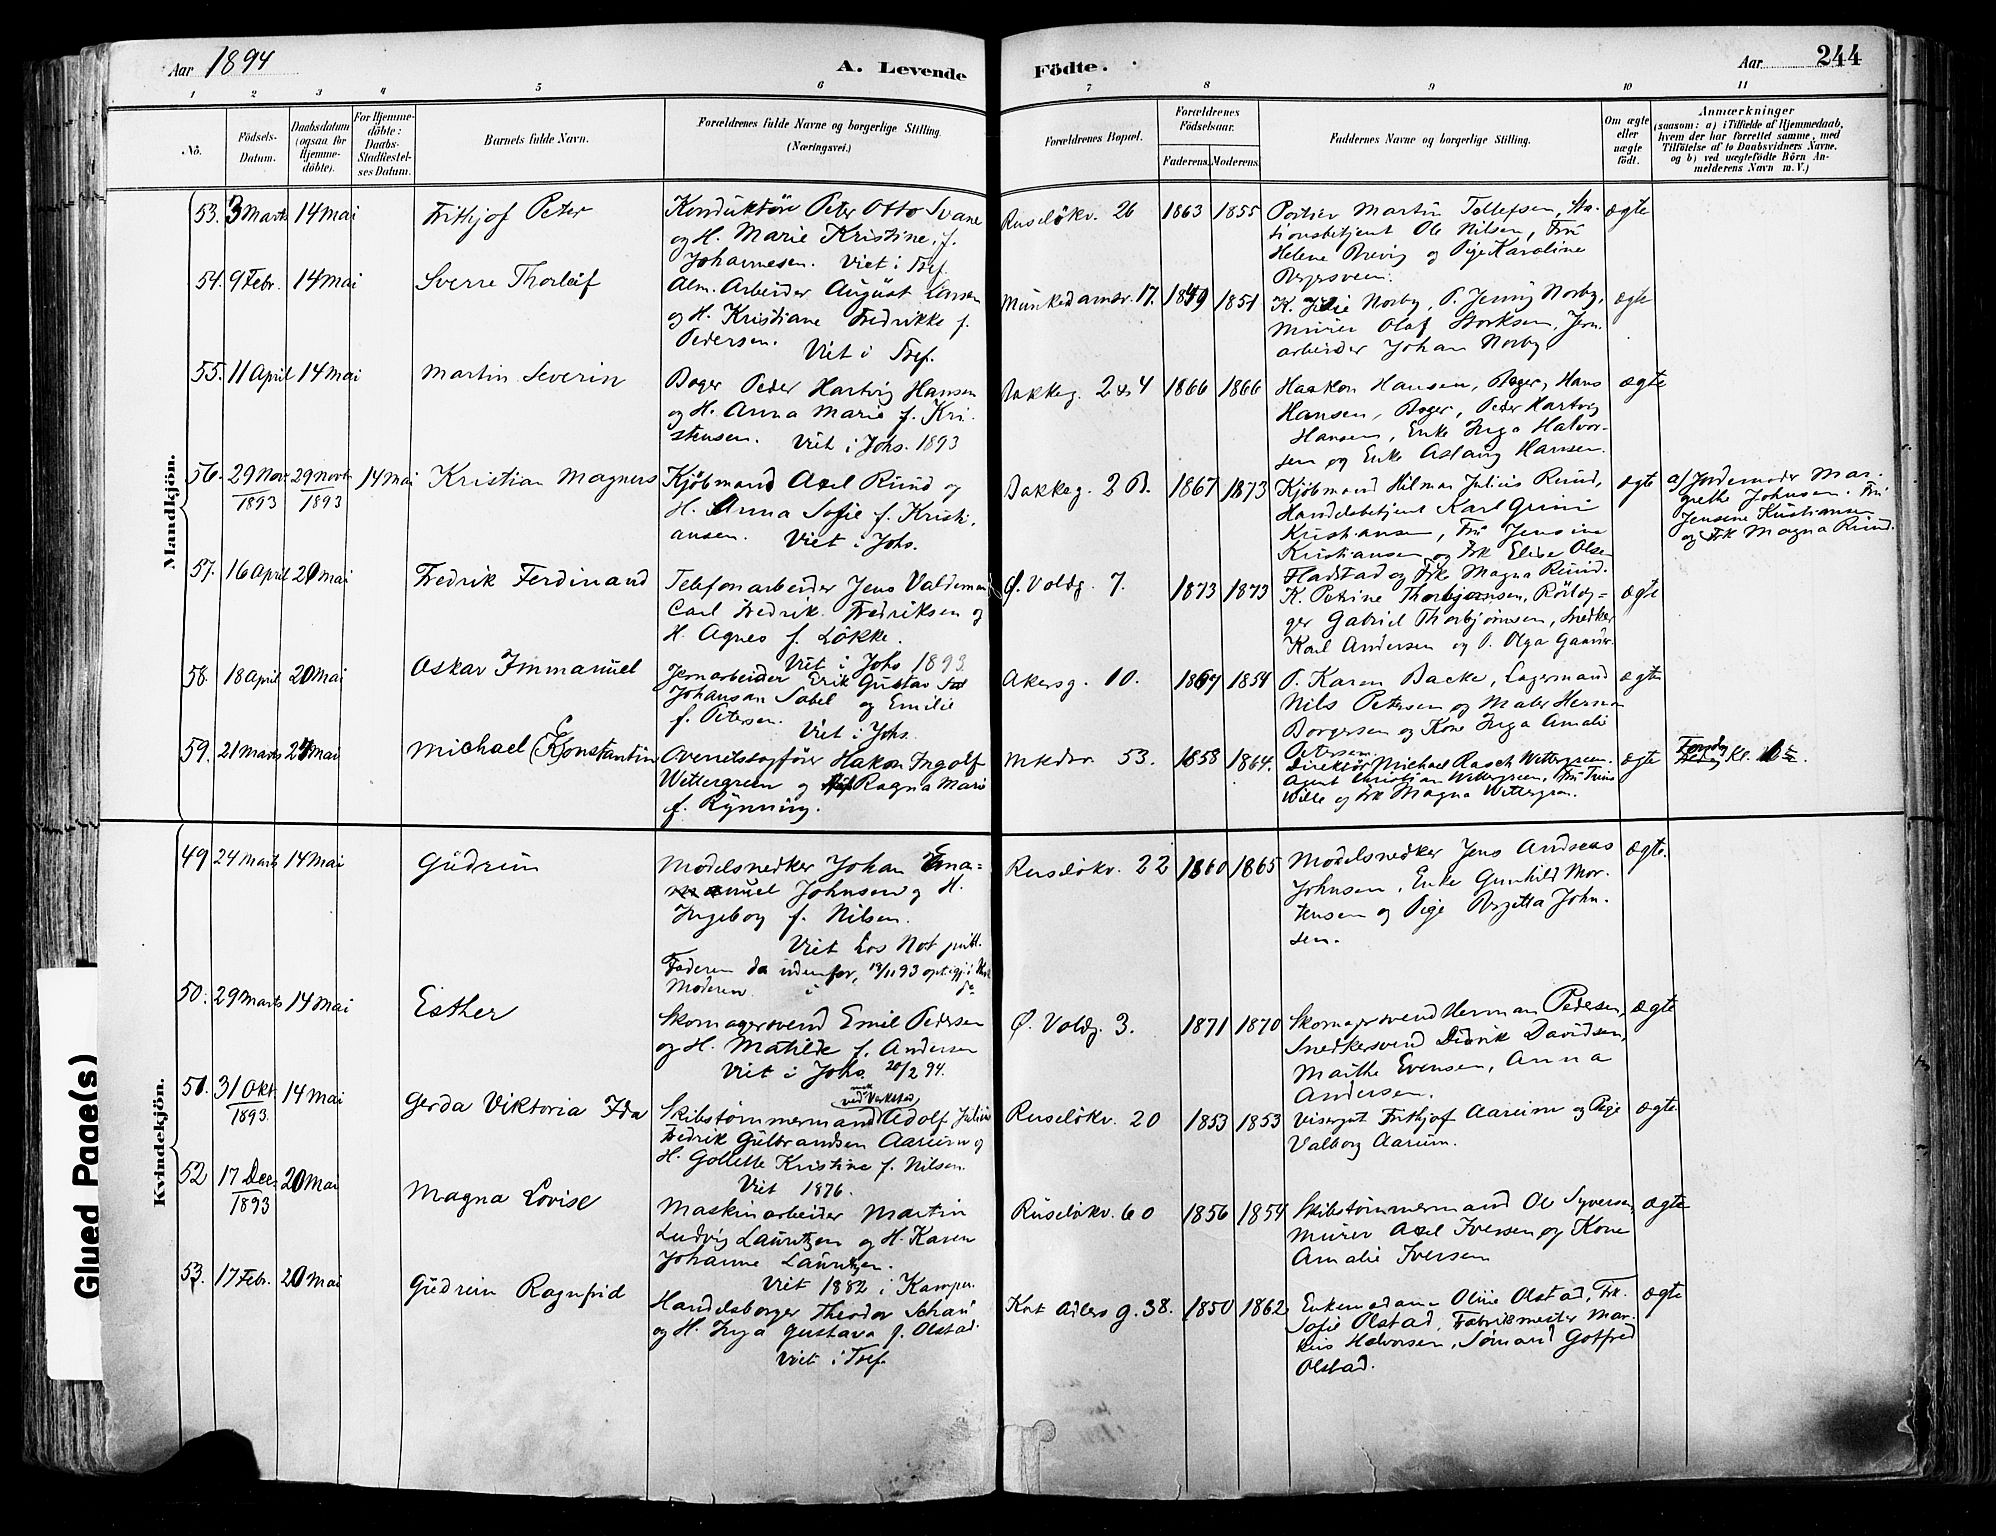 Aar 1894
A. Levende
Födte.
Aar
244
1 2 3 4 5 6 7 8 9 10 11
Nö.
Födsels-
Datum.
Daabsdatum
(ogsaa for
Hjemme-
döbte).
For Hjemme-
döbte:
Daabs-
Stadfæstel-
ses Datum.
Barnets fulde Navn.
Forældrenes fulde Navne og borgerlige Stilling.
(Næringsvei.)
Forældrenes Bopæl.
Forældrenes
Födselsaar.
Faderens. Moderens.
Faddernes Navne og borgerlige Stilling.
Om ægte
eller
uægte
födt.
Anmærkninger
(saasom: a) i Tilfælde af Hjemmedaab,
hvem der har forrettet samme, med
Tilföielse af to Daabsvidners Navne.
og b) ved uægtefödte Börn An-
melderens Navn m. V.)
Mandkjön.
53. 3 Marts 14 Mai
Frithjof Peter
Konduktör Peter Otto Svane
og H. Marie Kristine, f.
Johannesen. Viet i Tref.
Ruselökv. 26
1863 1855
Portier Martin Tollefsen, Sta-
tionsbetjent Ole Nilsen, Fru
Helene Brevig og Pige Karoline
ægte
54. 9 Febr. 14 Mai
Sverre Thorleif
Alm. Arbeider August Larsen
og H. Kristiane Fredrikke f.
Pedersen. Viet i Tref.
Munkedamsv. 17.
1849 1851
K. Julie Norby, P. Jenny Norby,
Murer Olaf Storksen, Jern-
arbeider Johan Norby
ægte
55. 11 April 14 Mai
Martin Severin
Bager Peder Hartvig Hansen
og H. Anna Marie f. Kri-
stensen. Viet i Johs. 1893
Bakkeg. 2 & 4
1866 1866
Haakon Hansen, Bager, Hans
Hansen, Bager, Peder Hartvig
Hansen, Enke Inga Halvor-
sen og Enke Aslaug Hansen.
ægte
56. 29 Nov. 1893 29 Novbr. 1893 14 Mai
Kristian Magnus
Kjöbmand Axel Ruud og
H. Anna Sofie f. Kristi-
ansen. Viet i Johs.
Bakkeg. 2 B.
1867 1873
Kjöbmand Hilmar Julius Ruud,
Handelsbetjent Karl Grini
Kristiansen, Fru Jensine
Kristiansen og Frk Elise Olsen
Fladstad og Frk Magna Ruud.
ægte
a) Jordemoder Mar-
grethe Johnsen. Fru
Jensine Kristiansen
og Frk Magna Ruud.
57. 16 April 20 Mai
Fredrik Ferdinand
Telefonarbeider Jens Valdemar
Carl Fredrik Fredriksen og
H. Agnes f. Lökke.
Viet i Johs 1893.
Ø. Voldg. 7.
1873 1873
K. Petrine Thorbjørnsen, Rörlæg-
ger Gabriel Thorbjörnsen, Snedker
Karl Andersen og P. Olga
ægte
58. 18 April 20 Mai
Oskar Immanuel
Jernarbeider Erik Gustav
Johansan Sabel og Emilie
f. Petersen.
Viet i Johs.
Akersg. 10.
1869 1854
P. Karen Backe, Lagermand
Nils Petersen og Maler Herman
Borgersen og Kone Inga Amalie
Petersen.
ægte
59. 21 Marts 24 Mai
Michael Konstantin
Overretssagförer Hakon Ingolf
Wittergreen og Ragna Marie
f. Rynning.
Mkdsv. 53.
1858 1864.
Direktör Michael Rasch Wittergreen
Agent Christian Wittergreen, Fru Trine
Wille og Frk Magna Wittergreen.
ægte
Kvindekjön.
49 24 Marts 14 Mai
Gudrun
Modelsnedker Johan Ema-
nuel Johnsen og H.
Ingeborg f. Nilsen.
Faderen da udenfor, 19/11 93
Moderen i
Ruselökv. 22
1860 1865
Modelsnedker Jens Andreas
Johnsen, Enke Gunhild Mor-
tensen og Pige Birgitta John-
sen.
ægte.
50. 29 Marts 14 Mai
Esther
Skomagersvend Emil Pedersen
og H. Matilde f. Andersen
Viet i Johs. 28/2 94.
Ø. Voldg. 3.
1871 1870
Skomagersvend Herman Pedersen,
Snedkersvend Didrik Davidsen,
Marthe Evensen, Anna
Andersen.
ægte
51. 31 Okt. 1893. 14 Mai
Gerda Viktoria Ida
Skibstømmermand Adolf Julius
Fredrik Gulbrandsen Aarum og
H. Gollette Kristine f. Nilsen.
Viet 1876.
Ruselökv. 20
1853 1853
Visergut Frithjof Aarum og Pige
Valborg Aarum.
ægte
52 17 Dec. 1893 20 Mai
Magna Lovise
Maskinarbeider Martin
Ludvig Lauritzen og H. Karen
Johanne Lauritzen.
Viet 1882 i Kampen.
Ruselökv. 60
1856 1854
Skibstømmermand Ole Syversen,
Murer Axel Iversen og Kone
Amalie Iversen
ægte
53. 17 Febr. 20 Mai
Gudrun Ragnfrid
Handelsborger Theodor Schau
og H. Inga Gustava f. Olstad.
Viet i Tref.
Kort Adlers g. 38.
1850 1862
Enkemadame Oline Olstad, Frk.
Sofie Olstad, Fabrikmester Mar-
kus Halvorsen, Sömand Gotfred
Olstad.
ægte
Glued Page(s)